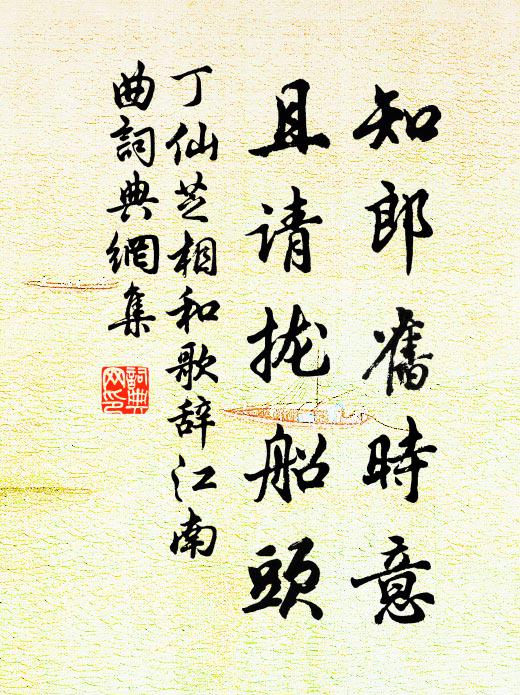 知郎舊時意
且请拢船頭
丁仙芝相和歌辞江南
曲詞典網集
詞典
网印